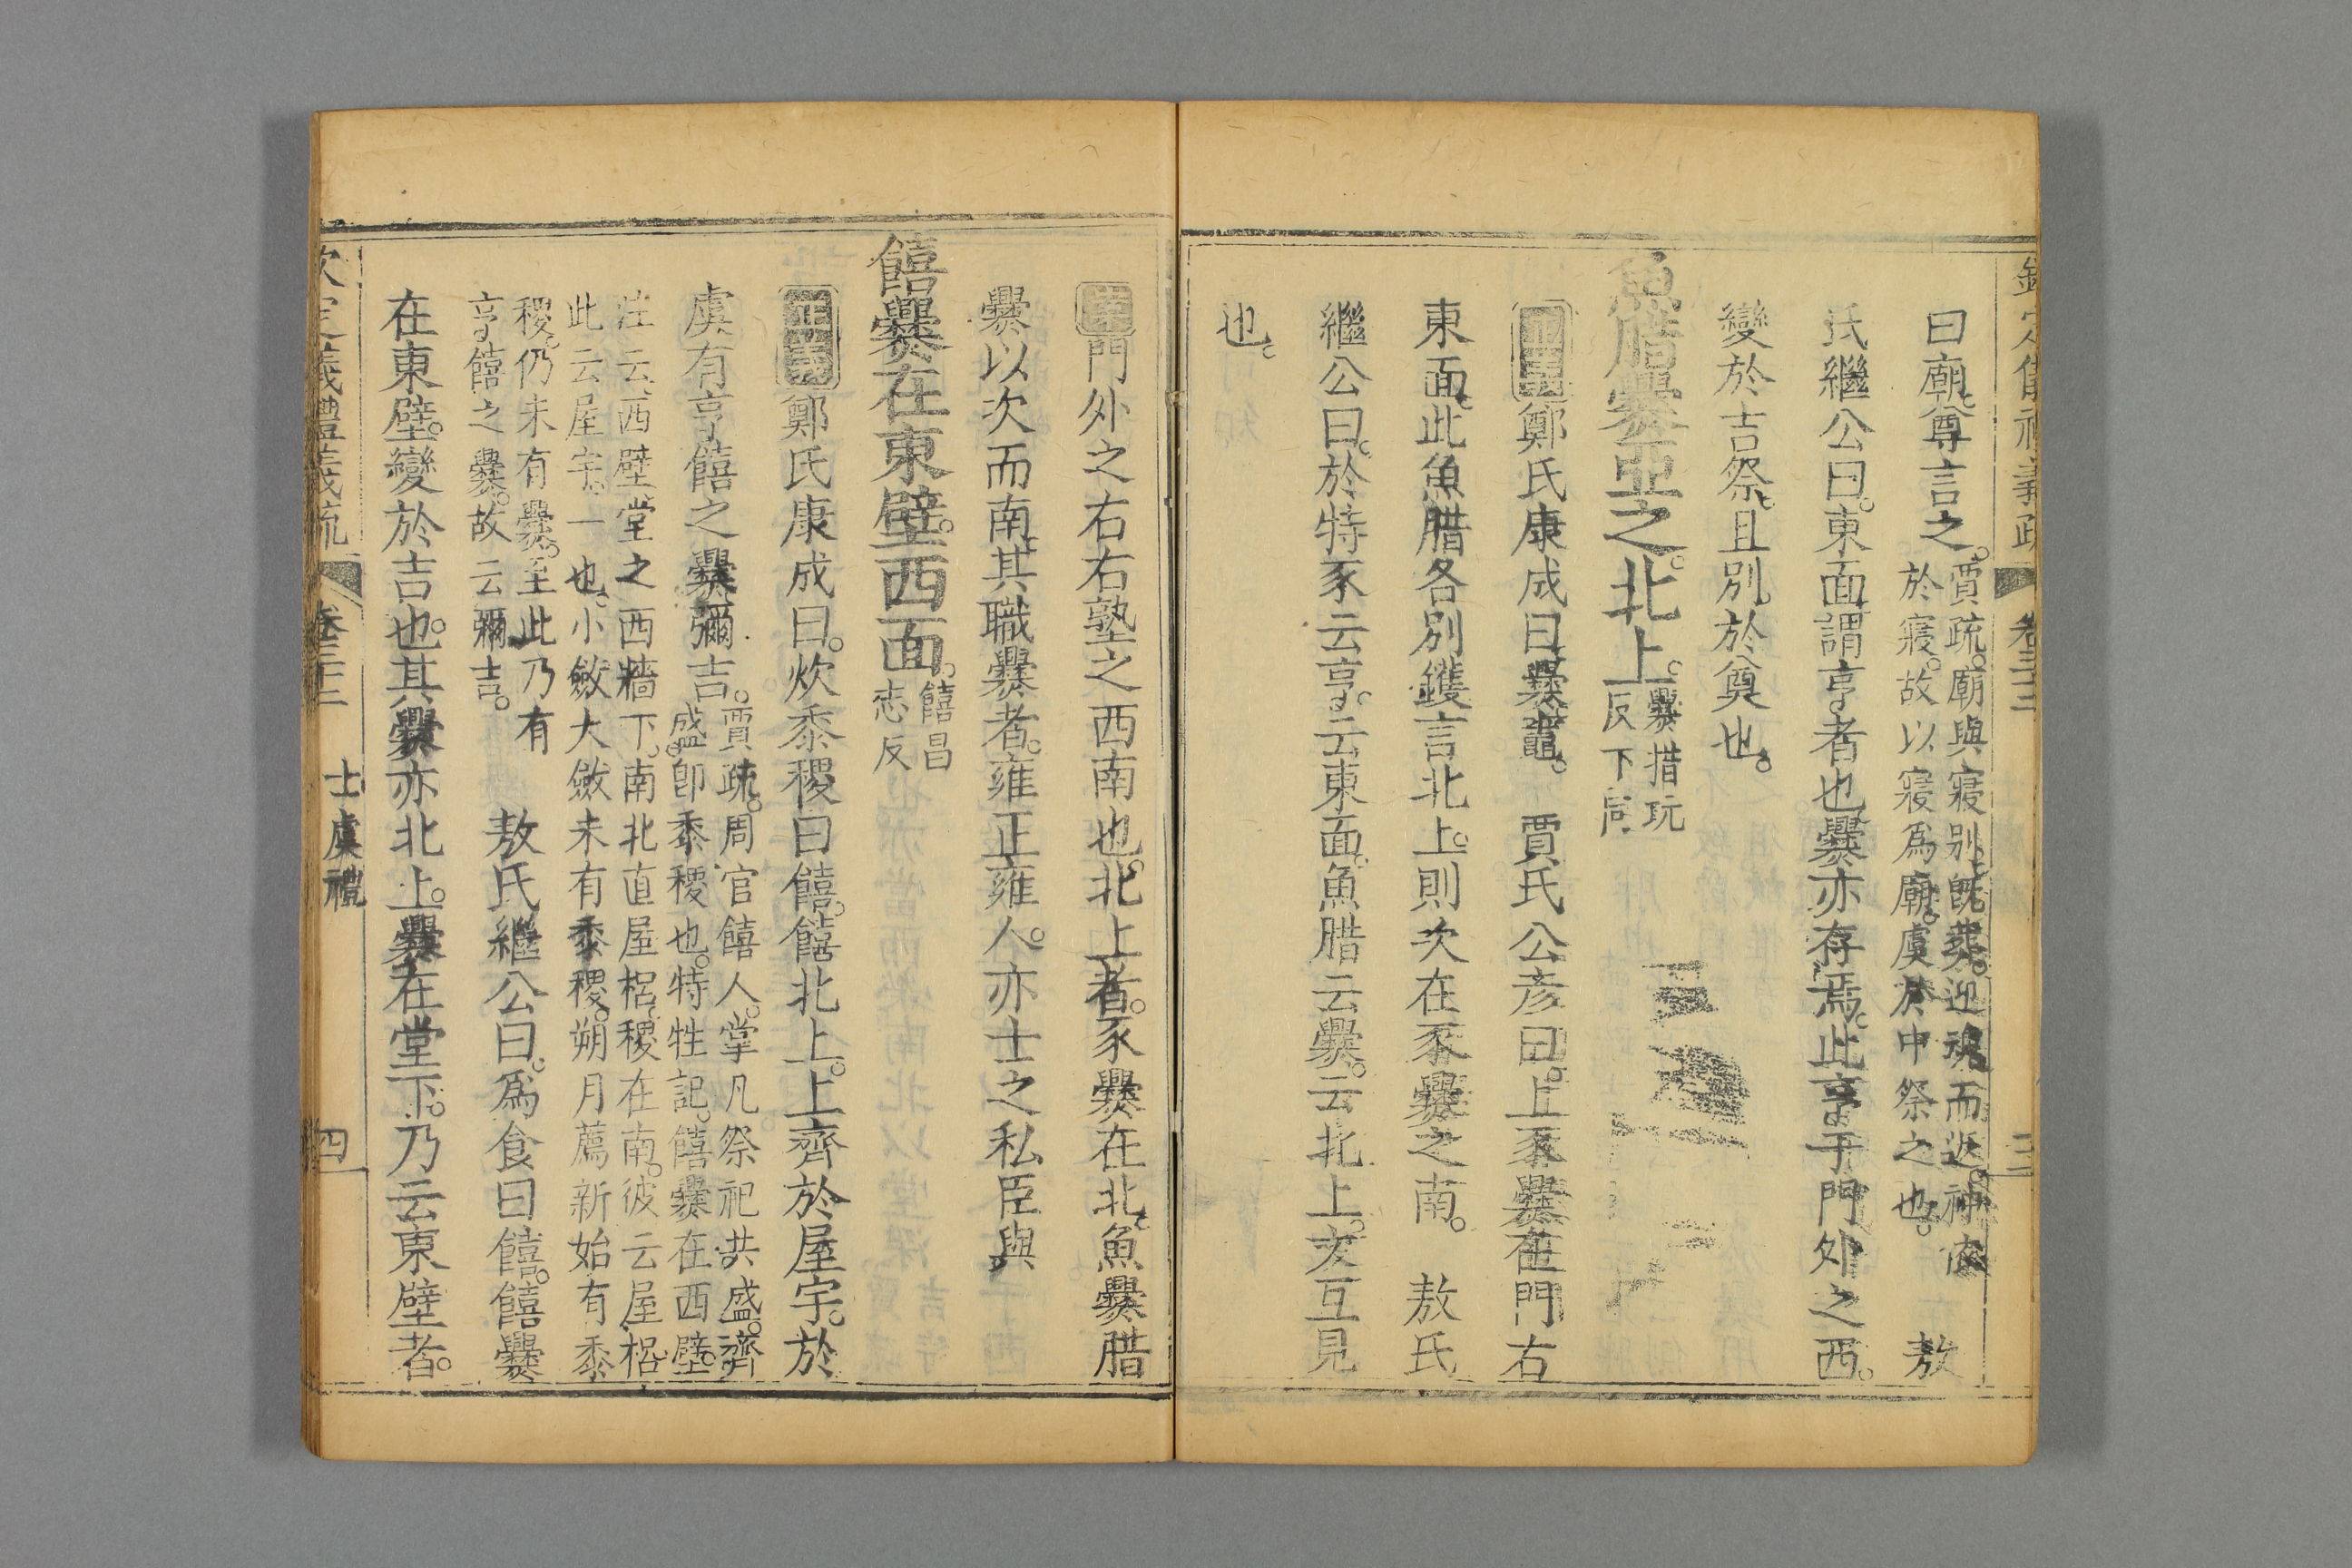 曰廟。尊言之。賈疏。廟與寢別。旣葬。迎魂而返。神依
於寢。故以寢爲廟。虞於中祭之也。 敖
氏繼公曰。東面謂亨者也。爨亦存焉。此亨于門外之西。
變於吉祭。且別於奠也。
魚腊爨亞之。北上。爨措玩
反下同
正義鄭氏康成曰爨竈。 賈氏公彥曰。上豕爨在門右
東面。此魚腊各別鑊言北上。則次在豕爨之南。 敖氏
繼公曰。於特豕云亨。云東面。魚腊云爨。云北上。文互見
也。
案門外之右右塾之西南也。北上者。豕爨在北。魚爨腊
爨以次而南。其職爨者。雍正雍人。亦士之私臣與
饎爨在東壁。西面。饎昌
志反
正義鄭氏康成曰。炊黍稷曰饎。饎北上。上齊於屋宇。於
虞有亨饎之爨彌吉。賈疏。周官饎人。掌凡祭祀共盛。齊
盛。卽黍稷也。特牲記。饎爨在西壁。
注云、西壁堂之西牆下。南北直屋梠稷在南。彼云屋梠
此云屋宇。一也。小斂大斂未有黍稷。朔月薦新始有黍
稷。仍未有爨。至此乃有
亨饎之爨。故云彌吉。
敖氏繼公曰。爲食曰饎。饎爨
在東壁。變於吉也。其爨亦北上。爨在堂下。乃云東壁者。
欽定義禮義疏 卷三十三 士虞禮 四